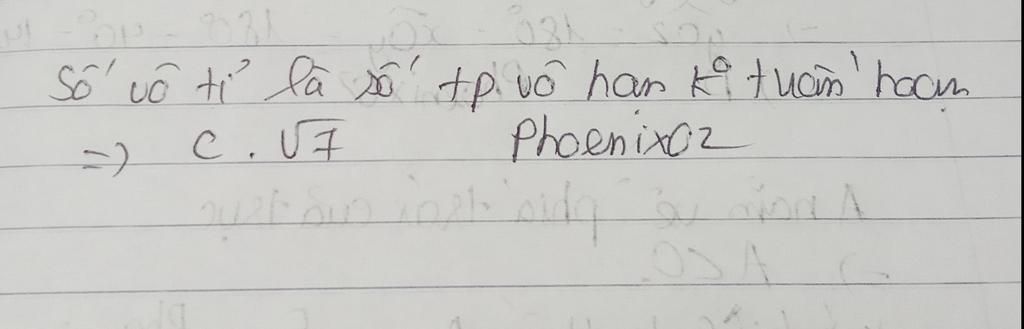 Số vô tỉ là số tp vô hạn k° tuần hoàn
=> C. √7 Phoenixoz